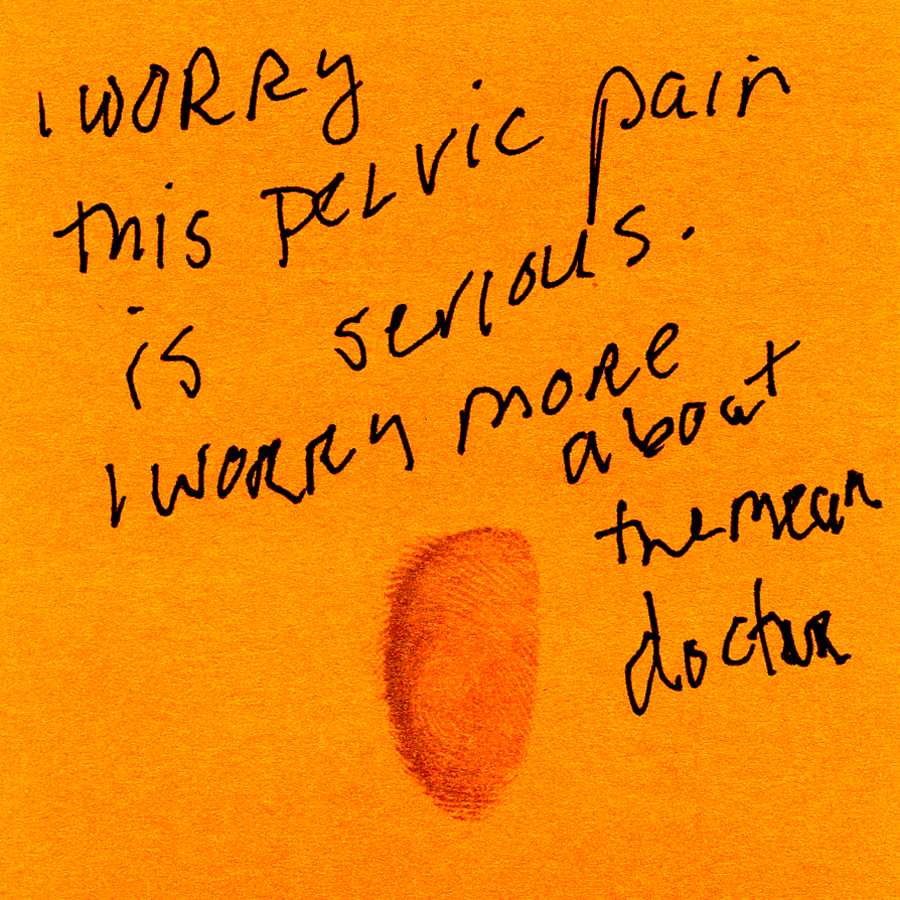 I WORRY
this PELVIC pain
is serious.
I WORRY MORE
about
the mean
doctor